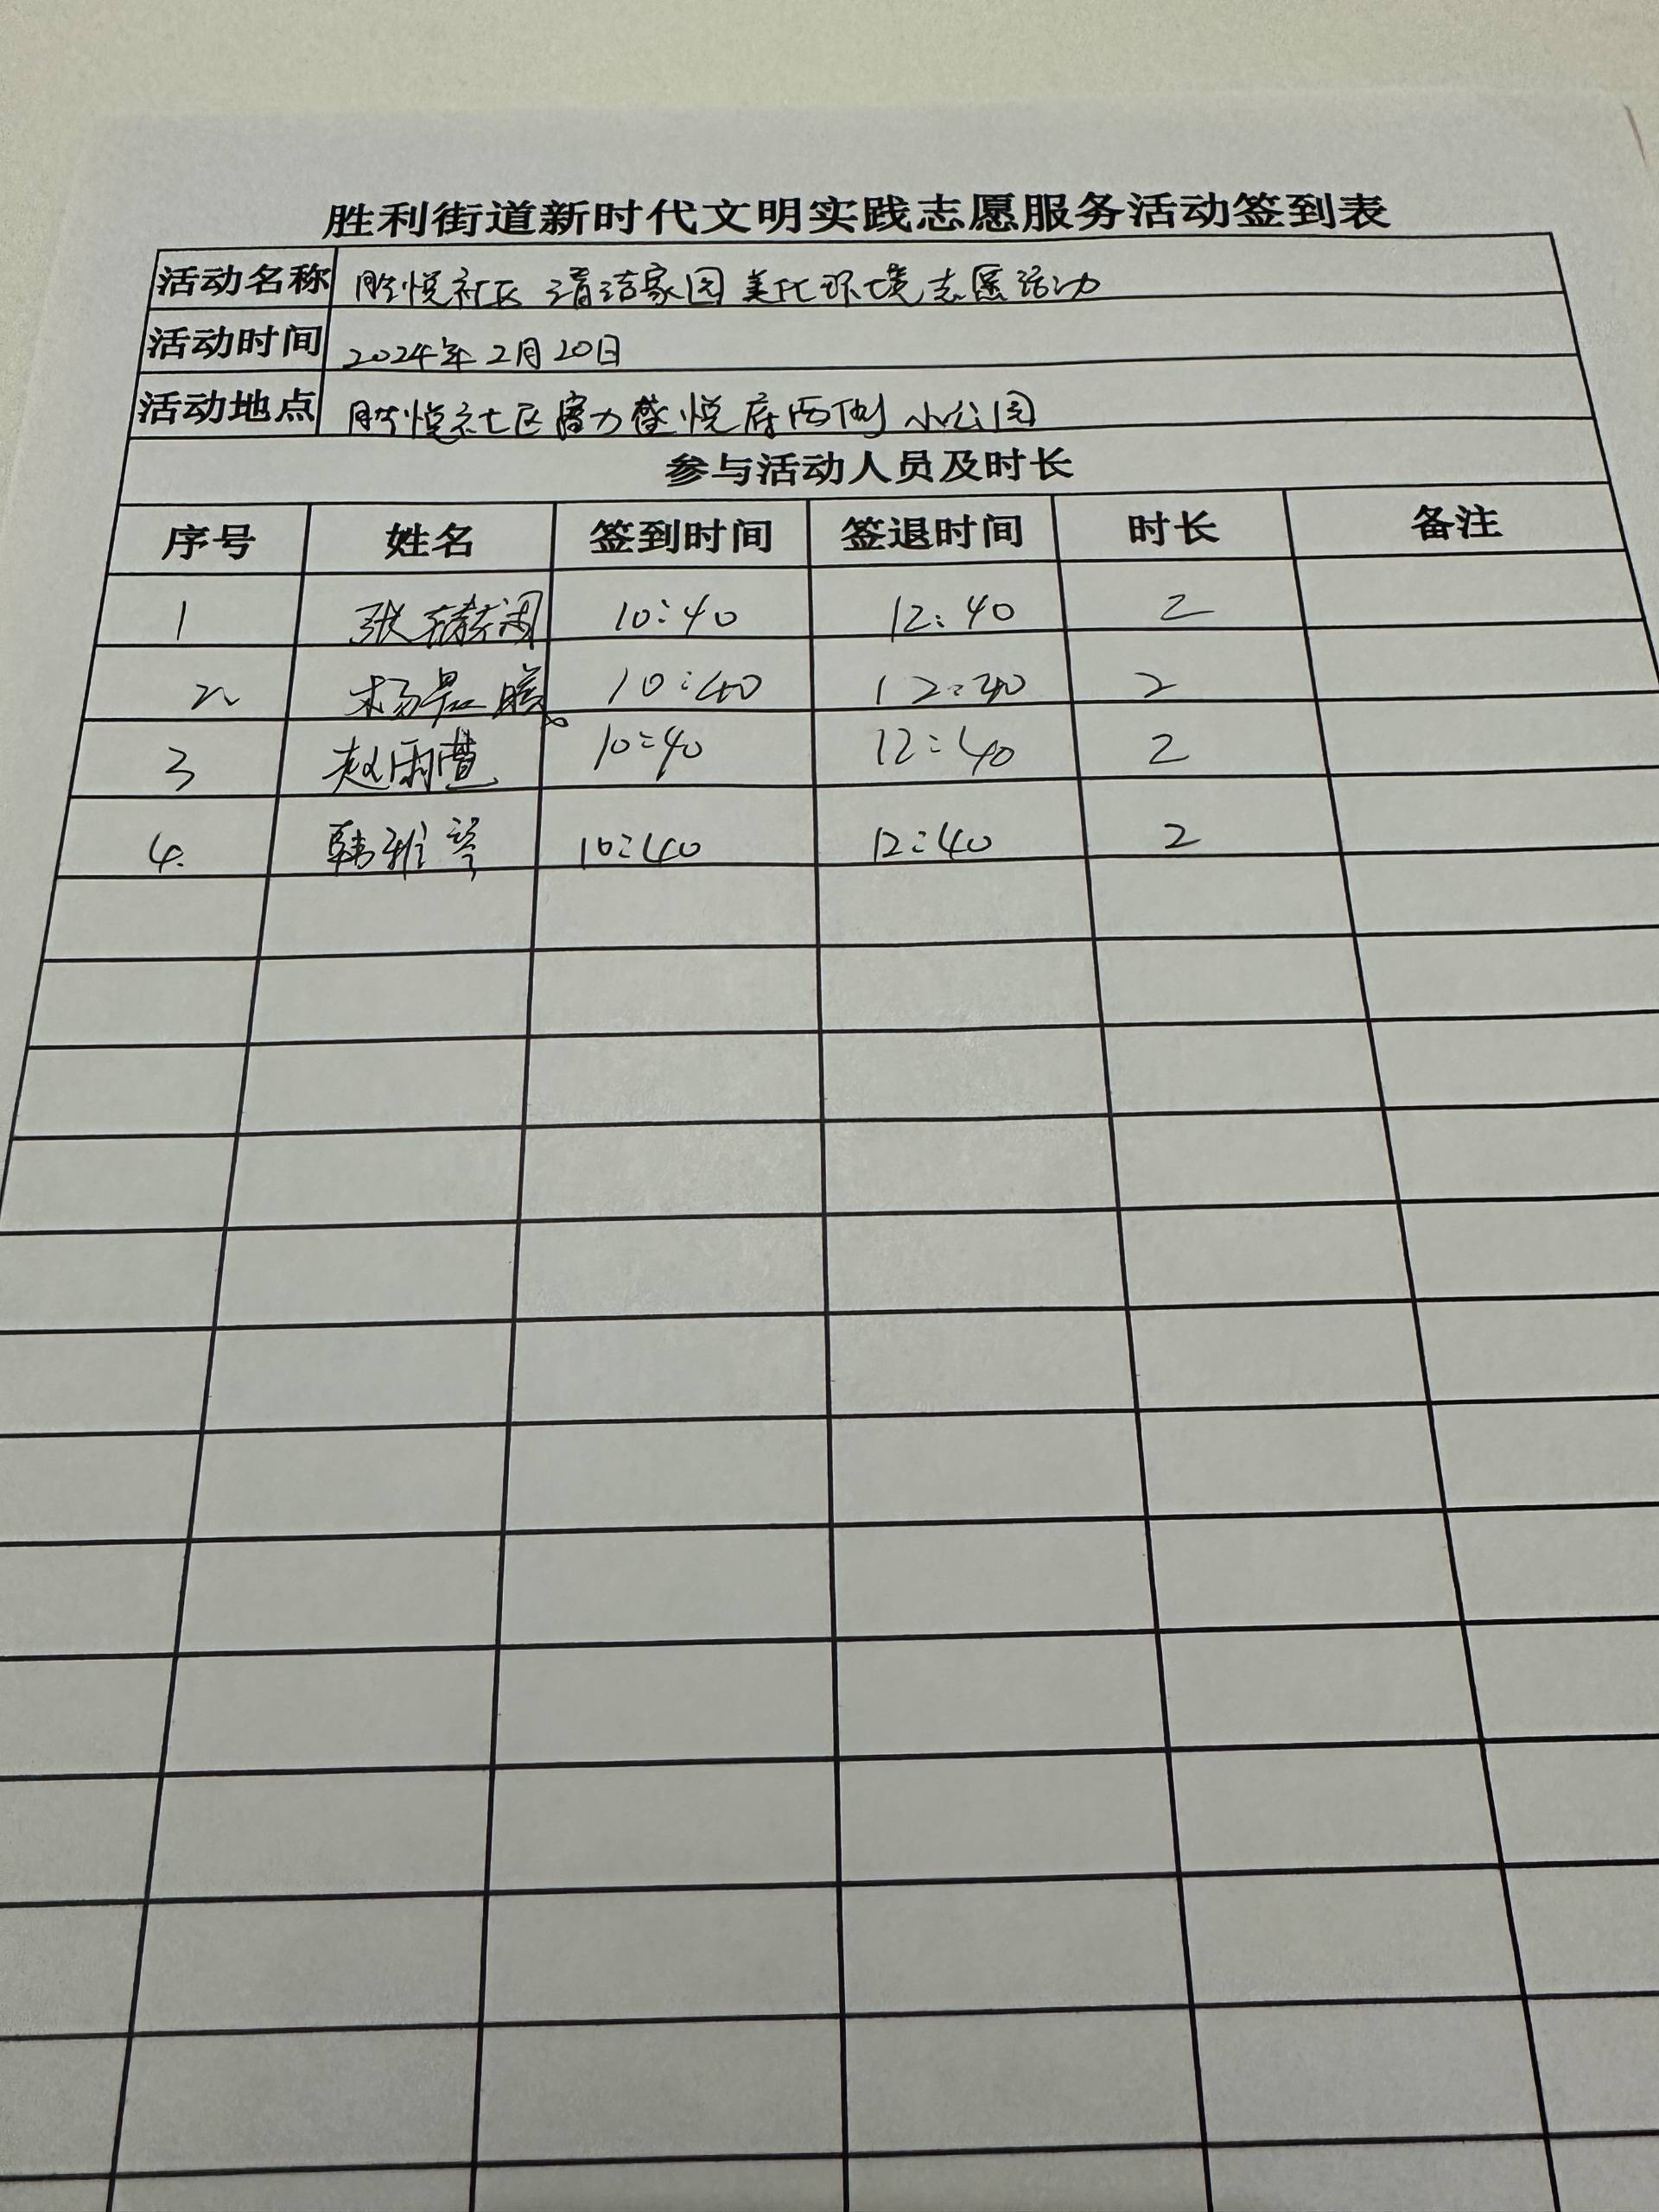 胜利街道新时代文明实践志愿服务活动签到表
活动名称 胜悦社区 清洁家园 美化环境志愿活动
活动时间 2024年2月20日
活动地点 胜悦社区富力盛悦府西侧小公园
参与活动人员及时长
序号 姓名 签到时间 签退时间 时长 备注
1 张 10:40 12:40 2
2 杨 10:40 12:40 2
3 赵雨萱 10:40 12:40 2
4. 韩雅琴 10:40 12:40 2